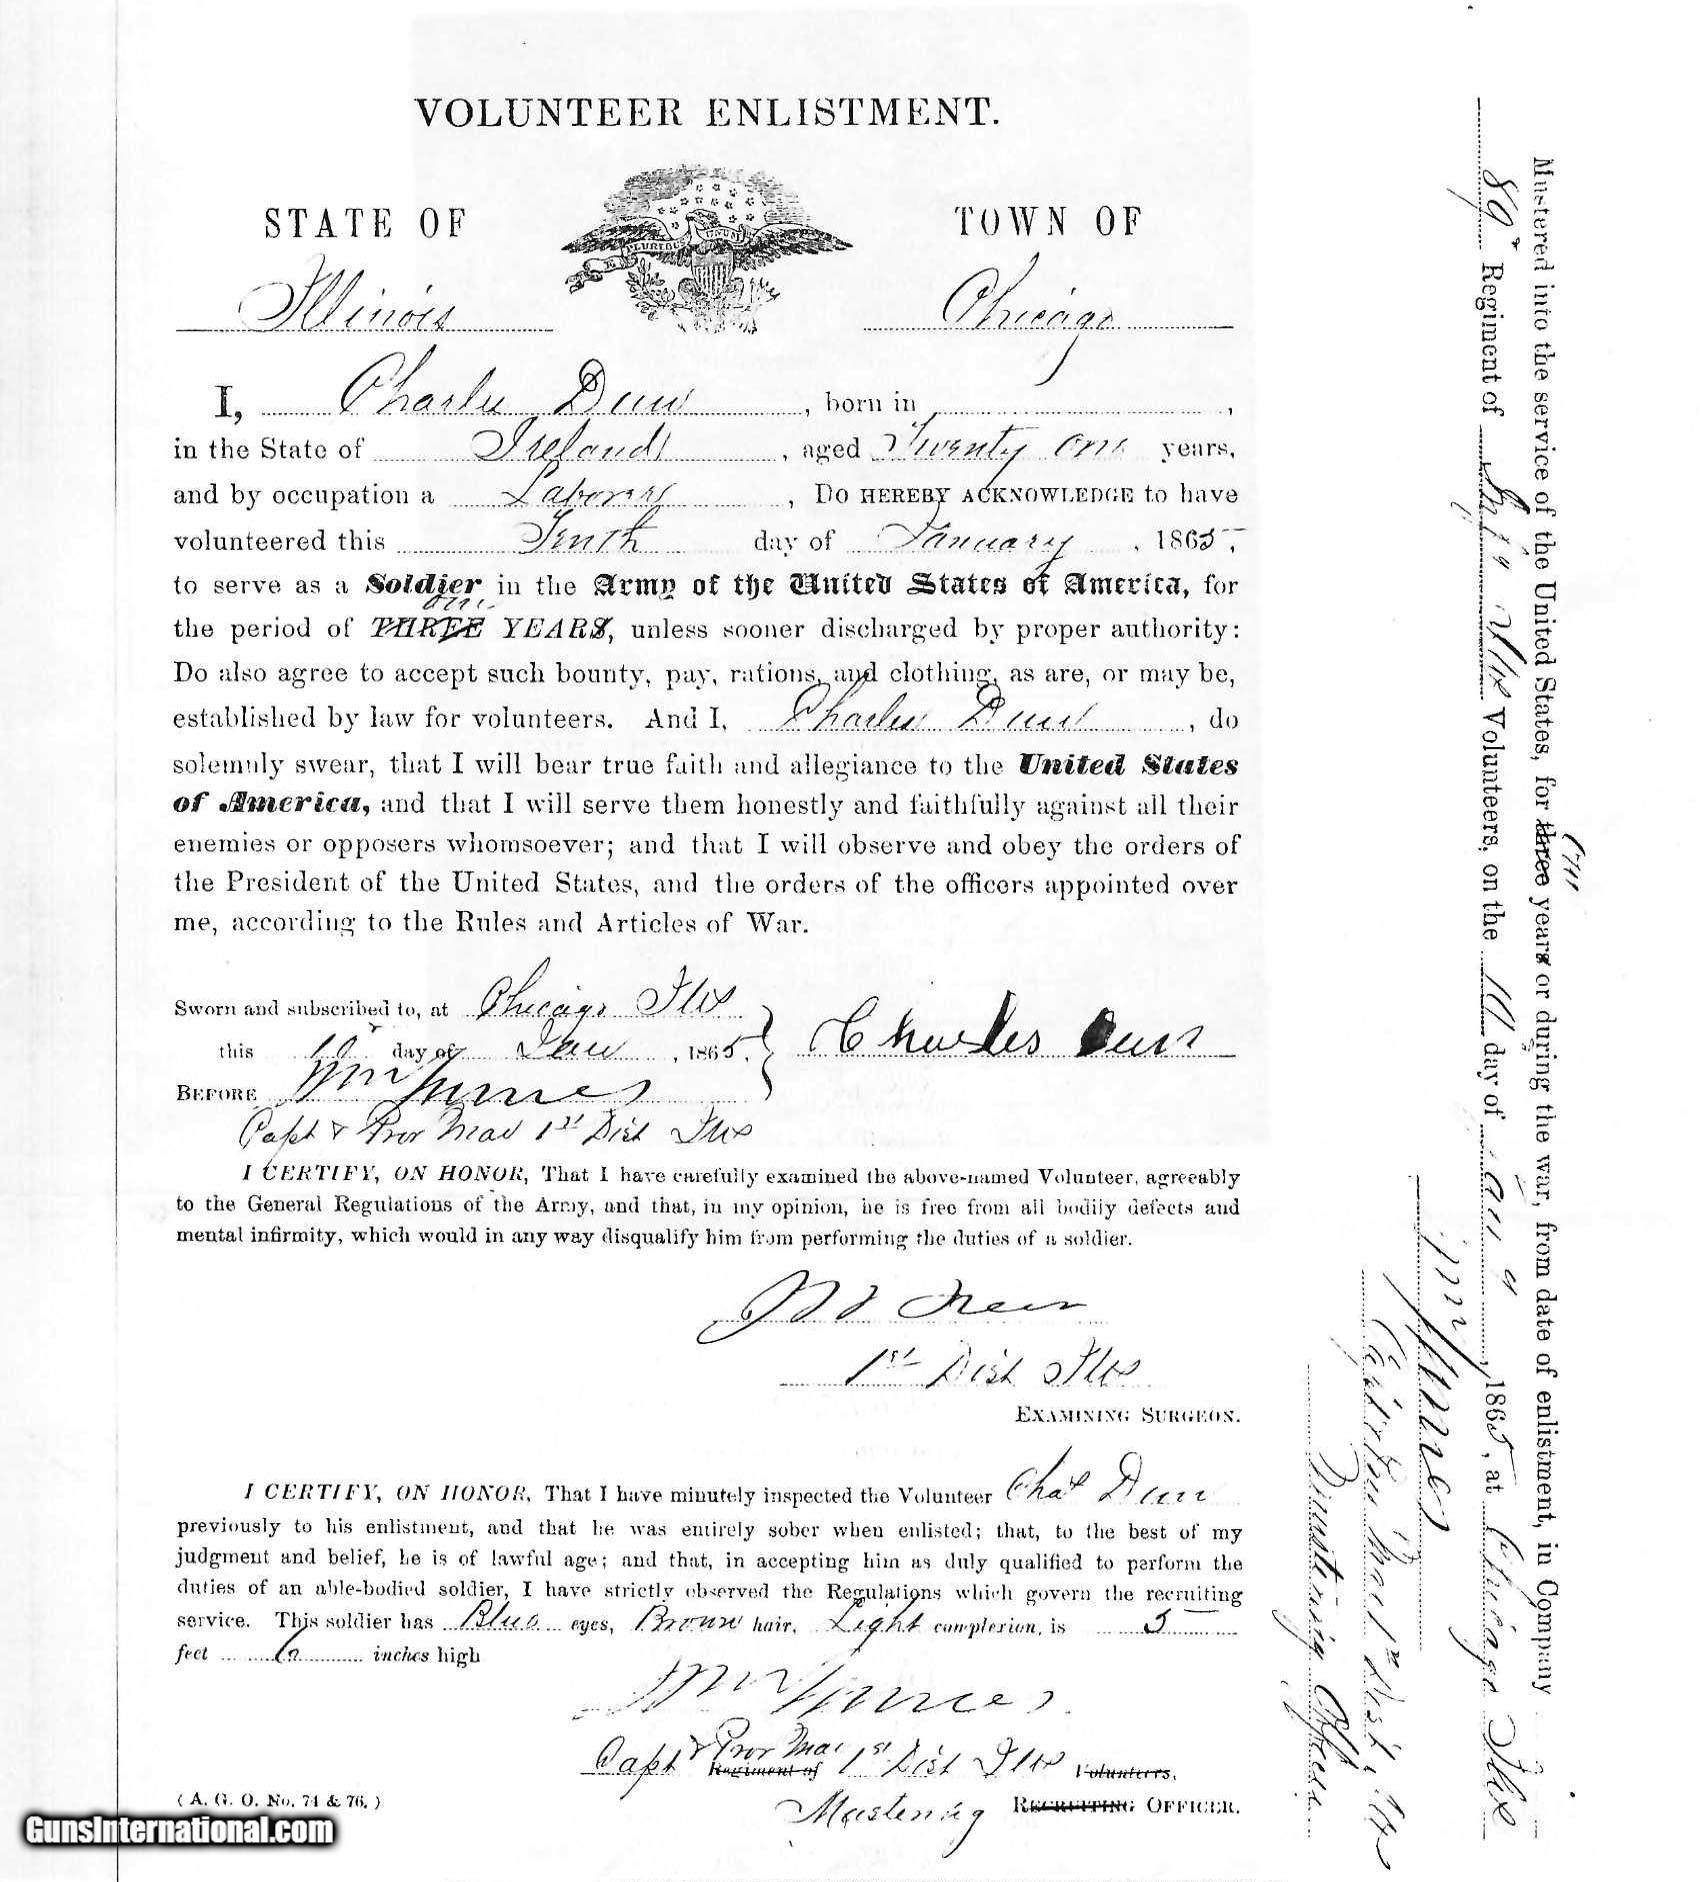 VOLUNTEER ENLISTMENT.
STATE OF
TOWN OF
E PLURIBUS UNUM
Illinois
Chicago
I, Charles Dunn, born in ,
in the State of Ireland, aged Twenty one years,
and by occupation a Laborer, DO HEREBY ACKNOWLEDGE to have
volunteered this Tenth day of January, 1865,
to serve as a Soldier in the Army of the United States of America, for
one
the period of THREE YEARS, unless sooner discharged by proper authority:
Do also agree to accept such bounty, pay, rations, and clothing, as are, or may be,
established by law for volunteers. And I, Charles Dunn, do
solemnly swear, that I will bear true faith and allegiance to the United States
of America, and that I will serve them honestly and faithfully against all their
enemies or opposers whomsoever; and that I will observe and obey the orders of
the President of the United States, and the orders of the officers appointed over
me, according to the Rules and Articles of War.
Sworn and subscribed to, at Chicago Ills
this 10" day of Jan, 1865,
Charles Dunn
BEFORE Wm James
Capt & Prov Mar 1st Dist Ills
I CERTIFY, ON HONOR, That I have carefully examined the above-named Volunteer, agreeably
to the General Regulations of the Army, and that, in my opinion, he is free from all bodily defects and
mental infirmity, which would in any way disqualify him from performing the duties of a soldier.
1st Dist Ills
EXAMINING SURGEON.
I CERTIFY, ON HONOR, That I have minutely inspected the Volunteer Chas Dunn
previously to his enlistment, and that he was entirely sober when enlisted; that, to the best of my
judgment and belief, he is of lawful age; and that, in accepting him as duly qualified to perform the
duties of an able-bodied soldier, I have strictly observed the Regulations which govern the recruiting
service. This soldier has Blue eyes, Brown hair, Light complexion, is 5
feet 6 inches high
Wm James
Capt & Prov Mar 1st Dist Ills
Regiment of Volunteers,
Mustering RECRUITING OFFICER.
(A. G. O. No. 74 & 76.)
GunsInternational.com
Mustered into the service of the United States, for three years or during the war, from date of enlistment, in Company
one
89" Regiment of Inf'y Ills Volunteers, on the 10 day of Jany, 1865, at Chicago Ills
Wm James
Capt & Prov Mar 1st Dist, Ills
Mustering Officer